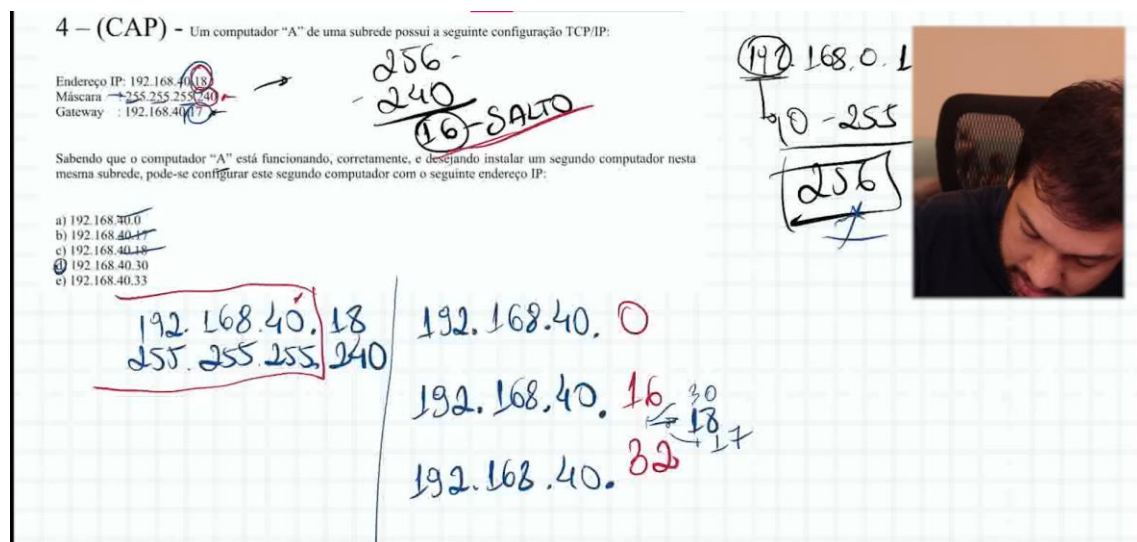 4 – (CAP) - Um computador “A” de uma subrede possui a seguinte configuração TCP/IP:
Endereço IP: 192.168.40.18
Máscara : 255.255.255.240
Gateway : 192.168.40.17
256 -
- 240
16 - SALTO
192.168.0.1
0 - 255
256
Sabendo que o computador “A” está funcionando, corretamente, e desejando instalar um segundo computador nesta
mesma subrede, pode-se configurar este segundo computador com o seguinte endereço IP:
a) 192.168.40.0
b) 192.168.40.17
c) 192.168.40.18
d) 192.168.40.30
e) 192.168.40.33
192.168.40.18
255.255.255.240
192.168.40.0
192.168.40.16
30
18
17
192.168.40.32